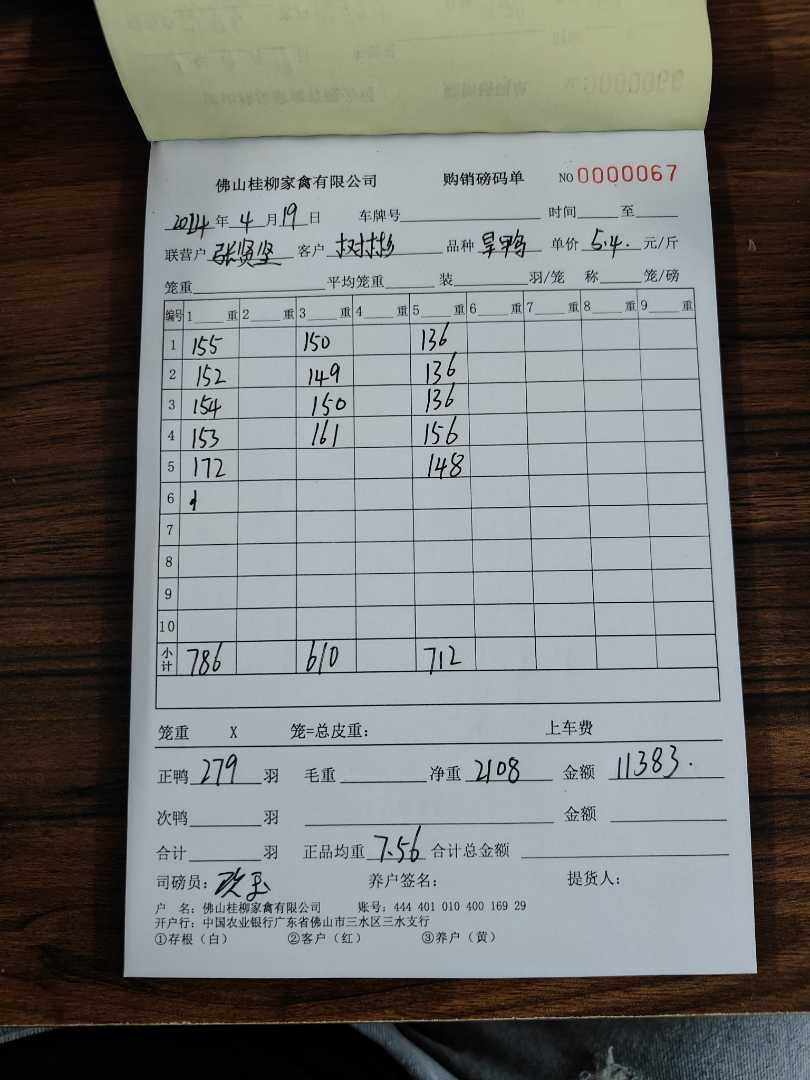 佛山桂柳家禽有限公司 购销磅码单 NO 0000067
2024年 4 月 19 日 车牌号 时间 至
联营户 张贤坚 客户 树彬 品种 旱鸭 单价 5.4. 元/斤
笼重 平均笼重 装 羽/笼 称 笼/磅
编号 1 重 2 重 3 重 4 重 5 重 6 重 7 重 8 重 9 重
1 155 150 136
2 152 149 136
3 154 150 136
4 153 161 156
5 172 148
6
7
8
9
10
小计 786 610 712
笼重 X 笼=总皮重: 上车费
正鸭 279 羽 毛重 净重 2108 金额 11383.
次鸭 羽 金额
合计 羽 正品均重 7.56 合计总金额
司磅员: 养户签名: 提货人:
户 名: 佛山桂柳家禽有限公司 账号: 444 401 010 400 169 29
开户行: 中国农业银行广东省佛山市三水区三水支行
①存根(白) ②客户(红) ③养户(黄)